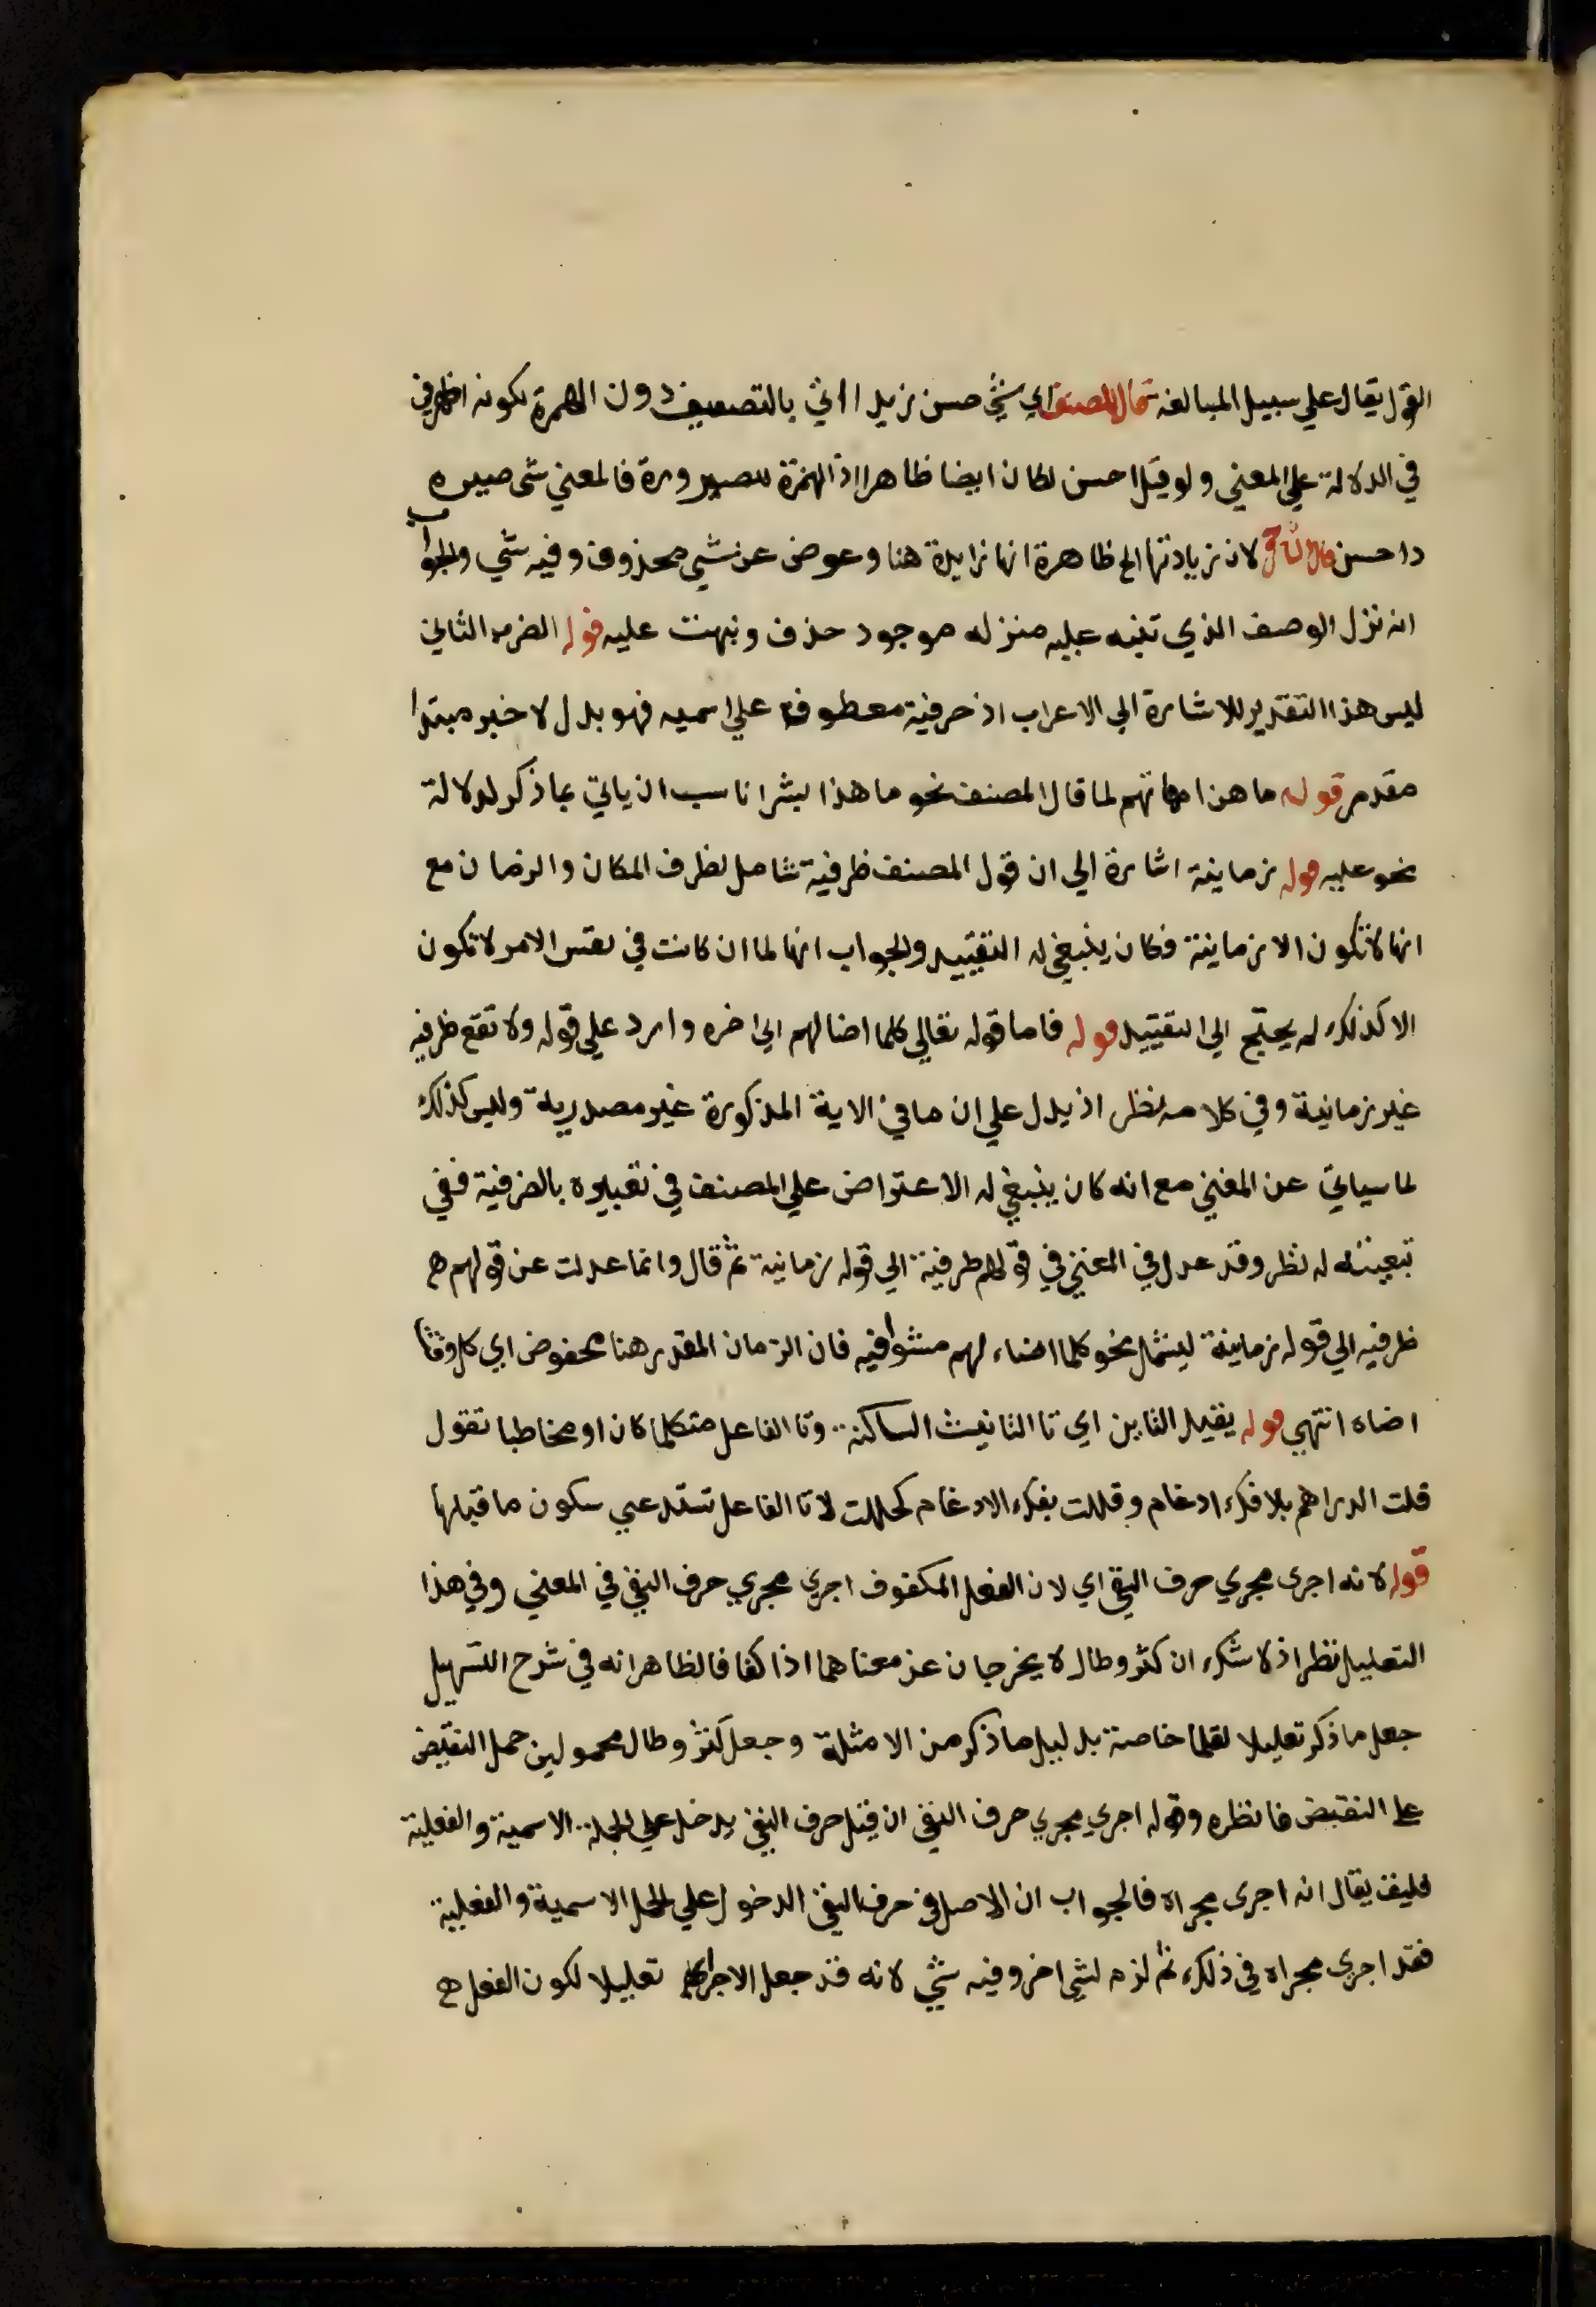 القول يقال علي سبيل المبالغة قال المصنف اي شي حسن زيدا اتي بالتضعيف دون الهمزة لكونه اظهر في
في الدلالة علي المعني ولو قيل احسن لكان ايضا ظاهرا اذ الهمزة للصيرورة فالمعني شي صيره
ذا حسن لان زيادتها الخ ظاهرة انها زايدة هنا وعوض عن شي محذوف وفيه شي والجواب
انه نزل الوصف الذي تنبه عليه منزله موجود حذف ونبهت عليه قوله الضرب الثاني
ليس هذا التقدير للاشارة الي الاعراب اذ حرفية معطوفة علي اسميه فهو بدل لا خبر مبتدا
مقدم قوله ما هن امهاتهم لما قال المصنف نحو ما هذا بشرا ناسب ان ياتي بما ذكر لدلالة
نحو عليه قوله زمانية اشارة الي ان قول المصنف ظرفية شامل لظرف المكان والزمان مع
انها لا تكون الا زمانية فكان ينبغي له التقييد والجواب انها لما ان كانت في نفس الامر لا تكون
الا كذلك لم يحتج الي التقييد قوله فاما قوله تعالي كلما اضا لهم الي اخره وارد علي قوله ولا تقع ظرفيه
غير زمانية وفي كلامه نظر اذ يدل علي ان ما في الاية المذكورة غير مصدرية وليس كذلك
لما سياتي عن المغني مع انه كان ينبغي له الاعتراض علي المصنف في تعبيره بالظرفية ففي
تبعيته له نظر وقد عدل في المغني في قولهم ظرفية الي قوله زمانية ثم قال وانما عدلت عن قولهم
ظرفيه الي قوله زمانية ليشمل نحو كلما اضاء لهم مشوا فيه فان الزمان المقدر هنا مخفوض اي كل وقت
اضاه انتهي قوله يفيد التاين اي تا التانيث الساكنة وتا الفاعل متكلما كان او مخاطبا تقول
قلت الدراهم بلا فك ادغام وقللت بفك الادغام كحللت لان تا الفاعل تستدعي سكون ما قبلها
قوله لانه اجرى مجري حرف النفي اي لان الفعل المكفوف اجري مجري حرف النفي في المعني وفي هذا
التعليل نظر اذ لا شك ان كثر وطال لا يخرجان عن معناهما اذا كفا فالظاهر انه في شرح التسهيل
جعل ما ذكر تعليلا لقلما خاصة بدليل ما ذكر من الامثلة وجعل كثر وطال محمولين حمل النقيض
علي النقيض فانظره وقوله اجري مجري حرف النفي ان قيل حرف النفي يدخل علي الجملة الاسمية والفعلية
فكيف يقال انه اجرى مجراه فالجواب ان الاصل في حرف النفي الدخول علي الجمل الاسمية والفعلية
فقد اجري مجراه في ذلك ثم لزم لشي اخر وفيه شي لانه قد جعل الاجراء تعليلا لكون الفعل